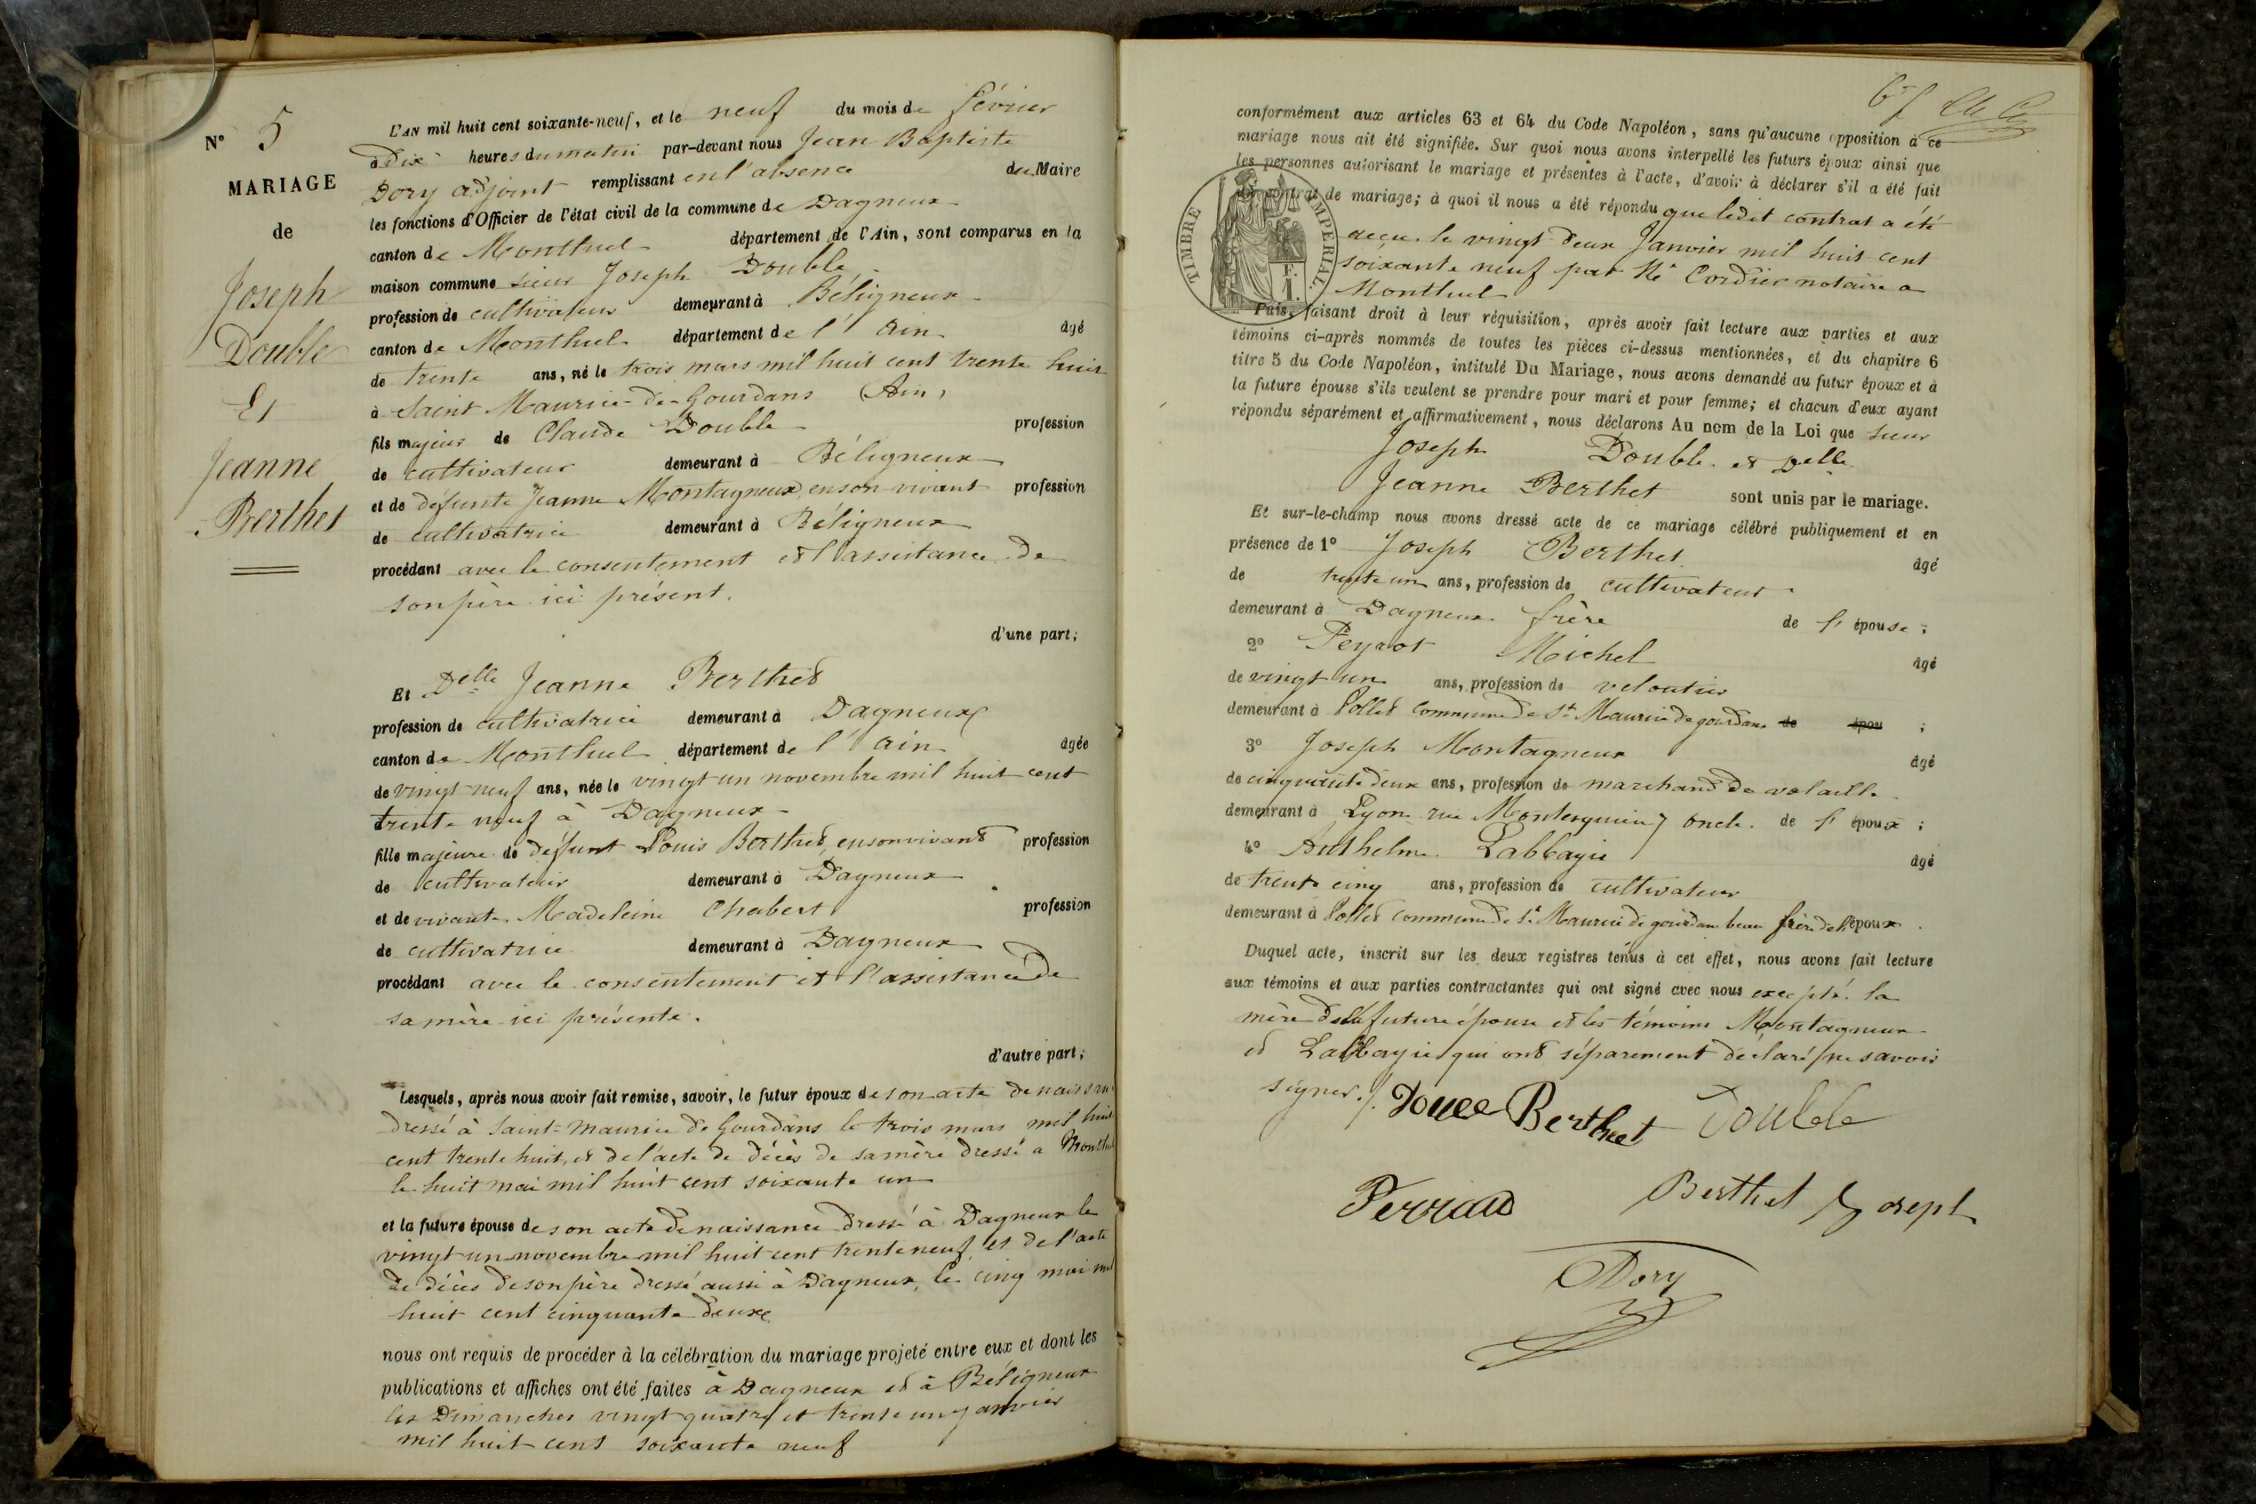 N° 5
MARIAGE
de
Joseph
Double
Et
Jeanne
Berthet
L'AN mil huit cent soixante-neuf, et le neuf du mois de février
à Dix heures du matin par-devant nous Jean Baptiste
Dory adjoint remplissant en l'absence du Maire
les fonctions d'Officier de l'état civil de la commune de Dagneux
canton de Montluel département de l'Ain, sont comparus en la
maison commune sieur Joseph Double
profession de cultivateur demeurant à Béligneux
canton de Montluel département de l'Ain âgé
de trente ans, né le trois mars mil huit cent trente huit
à Saint Maurice-de-Gourdans (Ain)
fils majeur de Claude Double profession
de cultivateur demeurant à Béligneux
et de défunte Jeanne Montagneux, en son vivant profession
de cultivatrice demeurant à Béligneux
procédant avec le consentement et l'assistance de
son père ici présent.
d'une part;
Et Delle Jeanne Berthet
profession de cultivatrice demeurant à Dagneux
canton de Montluel département de l'Ain âgée
de vingt-neuf ans, née le vingt un novembre mil huit cent
trente neuf à Dagneux
fille majeure de défunt Louis Berthet, en son vivant profession
de cultivateur demeurant à Dagneux
et de vivante Madeleine Chabert profession
de cultivatrice demeurant à Dagneux
procédant avec le consentement et l'assistance de
sa mère ici présente.
d'autre part;
Lesquels, après nous avoir fait remise, savoir, le futur époux de son acte de naissan
dressé à Saint-Maurice de Gourdans le trois mars mil huit
cent trente huit, et de l'acte de décès de sa mère dressé à Montlu
le huit mai mil huit cent soixante un
et la future épouse de son acte de naissance dressé à Dagneux le
vingt-un novembre mil huit cent trente neuf, et de l'acte
de décès de son père dressé aussi à Dagneux, le cinq mai mil
huit cent cinquante deux
nous ont requis de procéder à la célébration du mariage projeté entre eux et dont les
publications et affiches ont été faites à Dagneux et à Béligneux
les Dimanches vingt quatre et trente un janvier
mil huit cent soixante neuf
conformément aux articles 63 et 64 du Code Napoléon, sans qu'aucune opposition à ce
mariage nous ait été signifiée. Sur quoi nous avons interpellé les futurs époux ainsi que
les personnes autorisant le mariage et présentes à l'acte, d'avoir à déclarer s'il a été fait
contrat de mariage; à quoi il nous a été répondu que ledit contrat a été
TIMBRE IMPERIAL
F.
1.
reçu le vingt-deux Janvier mil huit cent
soixante neuf par Me Cordier notaire a
Montluel
Puis, faisant droit à leur réquisition, après avoir fait lecture aux parties et aux
témoins ci-après nommés de toutes les pièces ci-dessus mentionnées, et du chapitre 6
titre 5 du Code Napoléon, intitulé Du Mariage, nous avons demandé au futur époux et à
la future épouse s'ils veulent se prendre pour mari et pour femme; et chacun d'eux ayant
répondu séparément et affirmativement, nous déclarons Au nom de la Loi que sieur
Joseph Double et Delle
Jeanne Berthet sont unis par le mariage.
Et sur-le-champ nous avons dressé acte de ce mariage célébré publiquement et en
présence de 1° Joseph Berthet âgé
de trente un ans, profession de cultivateur
demeurant à Dagneux frère de l'épouse;
2° Peyrot Michel âgé
de vingt un ans, profession de veloutier
demeurant à Pollet commune de St Maurice de gourdans de épou;
3° Joseph Montagneux âgé
de cinquante deux ans, profession de marchand de volaille
demeurant à Lyon rue Montesquieu 7 oncle de l'époux;
4° Anthelme Labbayie âgé
de trente cinq ans, profession de cultivateur
demeurant à Pollet commune de St Maurice de gourdans beau frère de l'époux.
Duquel acte, inscrit sur les deux registres tenus à cet effet, nous avons fait lecture
aux témoins et aux parties contractantes qui ont signé avec nous excepté la
mère de la future épouse et les témoins Montagneux
et Labbayie qui ont séparement déclaré ne savoir
signer./.
Double Berthet Double
Berthet Joseph
Dory